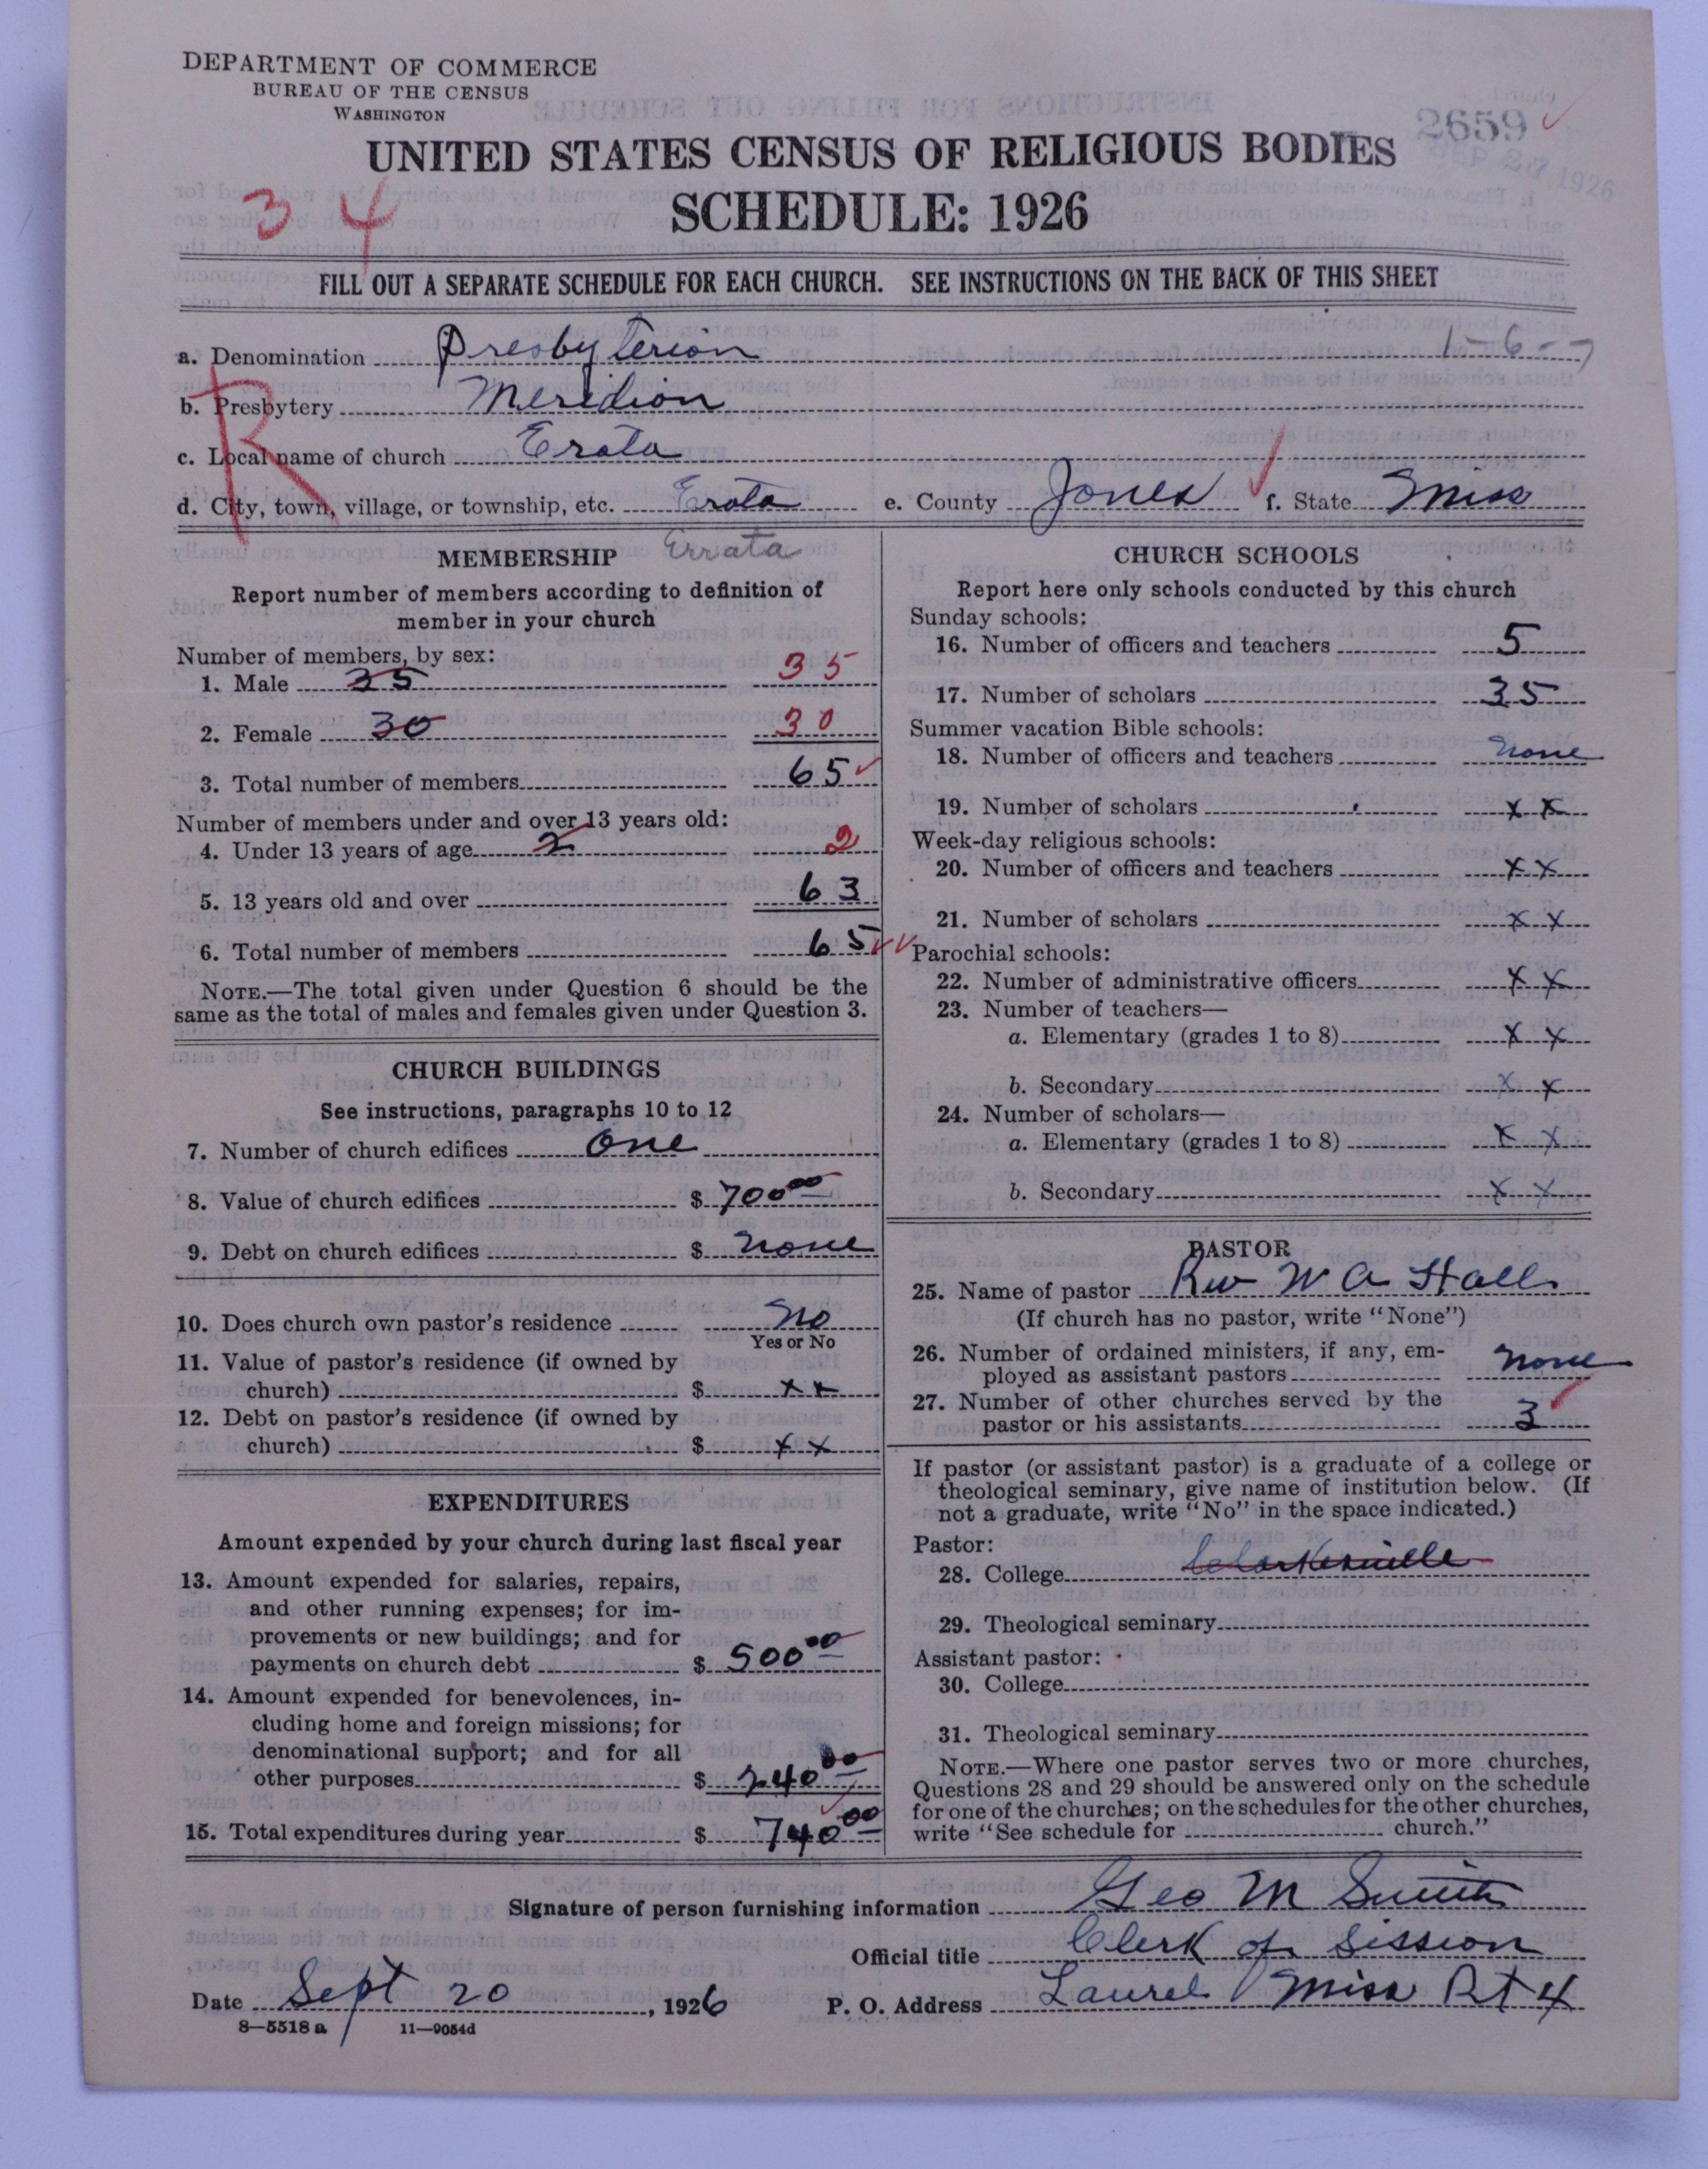 DEPARTMENT OF COMMERCE
BUREAU OF THE CENSUS
WASHINGTON
2659
SEP 27 1926
UNITED STATES CENSUS OF RELIGIOUS BODIES
SCHEDULE: 1926
3 4
FILL OUT A SEPARATE SCHEDULE FOR EACH CHURCH. SEE INSTRUCTIONS ON THE BACK OF THIS SHEET
a. Denomination Presbyterian 1-6-7
b. Presbytery Meridian
R
c. Local name of church Erata
d. City, town, village, or township, etc. Erata e. County Jones f. State Miss
Errata
MEMBERSHIP
Report number of members according to definition of
member in your church
Number of members, by sex:
1. Male 35 35
2. Female 30 30
3. Total number of members 65
Number of members under and over 13 years old:
4. Under 13 years of age 2 2
5. 13 years old and over 63
6. Total number of members 65
NOTE.—The total given under Question 6 should be the
same as the total of males and females given under Question 3.
CHURCH BUILDINGS
See instructions, paragraphs 10 to 12
7. Number of church edifices one
8. Value of church edifices $ 700 00
9. Debt on church edifices $ none
10. Does church own pastor's residence No
Yes or No
11. Value of pastor's residence (if owned by
church) $ x x
12. Debt on pastor's residence (if owned by
church) $ x x
EXPENDITURES
Amount expended by your church during last fiscal year
13. Amount expended for salaries, repairs,
and other running expenses; for im-
provements or new buildings; and for
payments on church debt $ 500 00
14. Amount expended for benevolences, in-
cluding home and foreign missions; for
denominational support; and for all
other purposes $ 240 00
15. Total expenditures during year $ 740 00
CHURCH SCHOOLS
Report here only schools conducted by this church
Sunday schools:
16. Number of officers and teachers 5
17. Number of scholars 35
Summer vacation Bible schools:
18. Number of officers and teachers none
19. Number of scholars x x
Week-day religious schools:
20. Number of officers and teachers x x
21. Number of scholars x x
Parochial schools:
22. Number of administrative officers x x
23. Number of teachers—
a. Elementary (grades 1 to 8) x x
b. Secondary x x
24. Number of scholars—
a. Elementary (grades 1 to 8) x x
b. Secondary x x
PASTOR
25. Name of pastor Rev W A Hall
(If church has no pastor, write "None")
26. Number of ordained ministers, if any, em-
ployed as assistant pastors none
27. Number of other churches served by the
pastor or his assistants 3
If pastor (or assistant pastor) is a graduate of a college or
theological seminary, give name of institution below. (If
not a graduate, write "No" in the space indicated.)
Pastor:
28. College Clarksville
29. Theological seminary
Assistant pastor:
30. College
31. Theological seminary
NOTE.—Where one pastor serves two or more churches,
Questions 28 and 29 should be answered only on the schedule
for one of the churches; on the schedules for the other churches,
write "See schedule for church."
Signature of person furnishing information Geo M Smith
Official title Clerk of Session
Date Sept 20, 1926 P. O. Address Laurel Miss Rt 4
8—5518 a 11—9054d